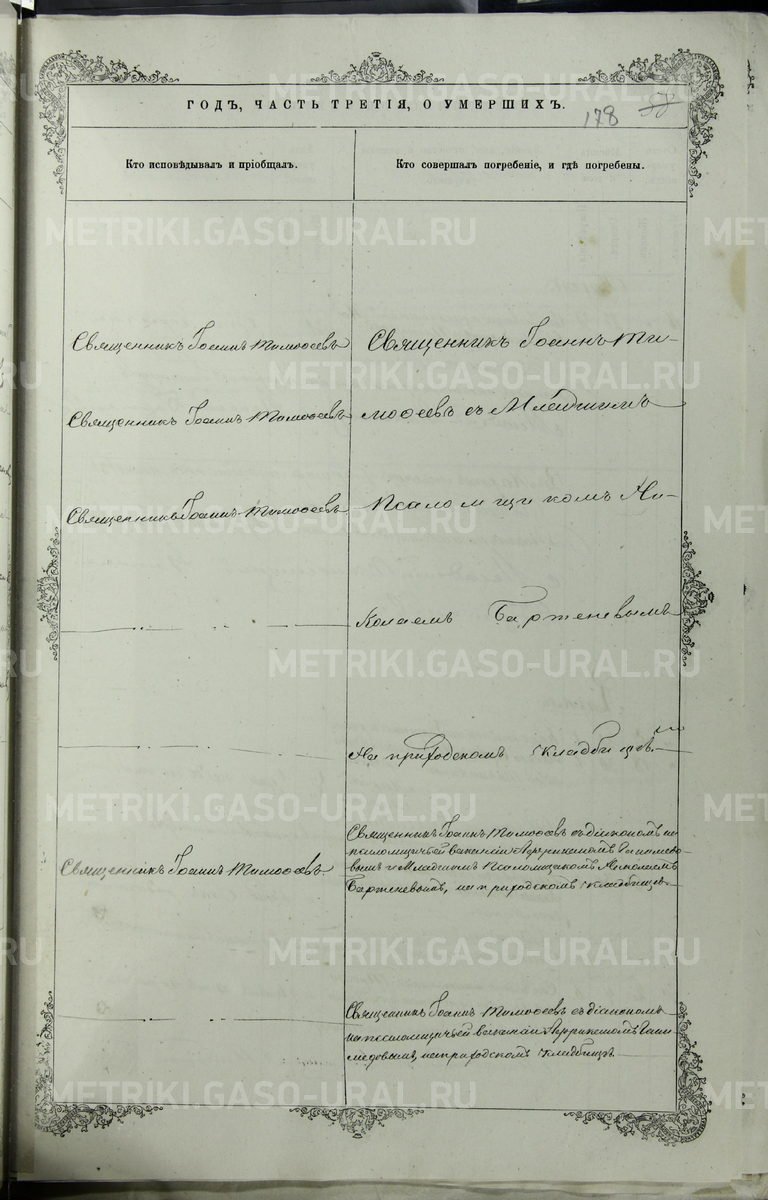 ГОДЪ, ЧАСТЬ ТРЕТІЯ, О УМЕРШИХЪ.
178
Кто исповѣдывалъ и пріобщалъ.
Кто совершалъ погребеніе, и гдѣ погребены.
Священникъ Іоаннъ Тимоѳеевъ
Священникъ Іоаннъ Ти-
Священникъ Іоаннъ Тимоѳеевъ
моѳеевъ съ Младшимъ
Священникъ Іоаннъ Тимоѳеевъ
Псаломщикомъ Ни-
колаемъ Барженевымъ
На приходскомъ кладбищѣ.
Священникъ Іоаннъ Тимоѳеевъ
Священникъ Іоаннъ Тимоѳеевъ съ діакономъ на
псаломщичьей вакансіи
вымъ и Младшимъ Псаломщикомъ Николаемъ
Барженевымъ, на приходскомъ кладбищѣ.
Священникъ Іоаннъ Тимоѳеевъ съ діакономъ
на псаломщичьей вакансіи
на приходскомъ кладбищѣ.
METRIKI.GASO-URAL.RU